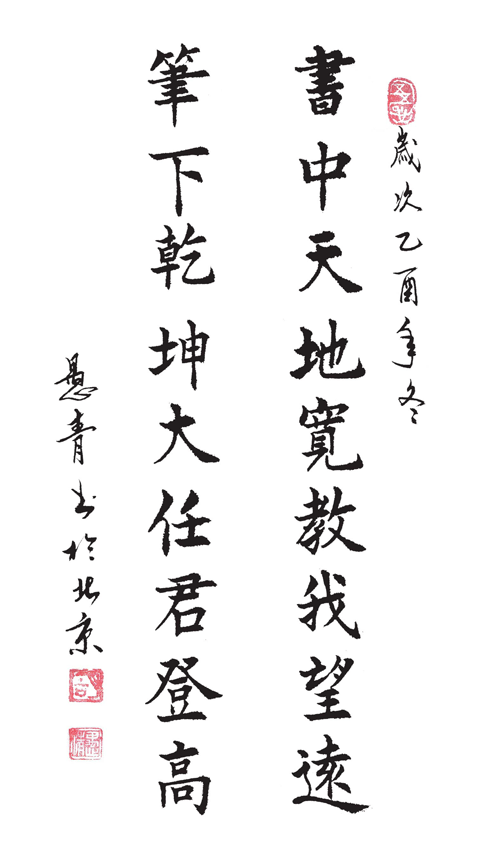 歲次乙酉年冬
書中天地寬教我望遠
筆下乾坤大任君登高
青书於北京